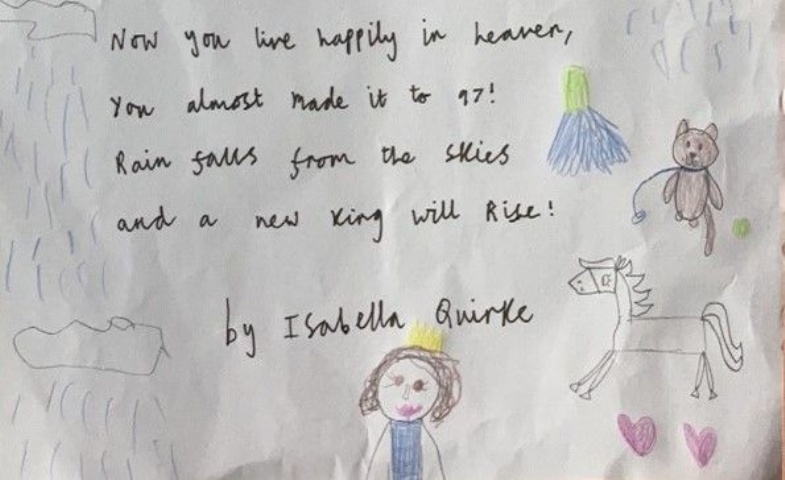 Now you live happily in heaven,
You almost made it to 97!
Rain falls from the skies
and a new King will Rise!
by Isabella Quirke